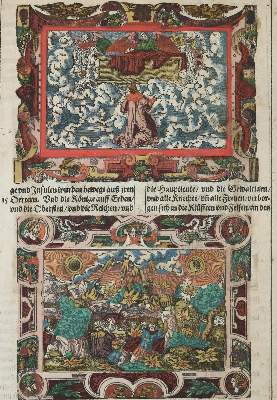 ge vnd Insulen wurden bewegt auß jren
15 Oertern. Vnd die Könige auff Erden/
vnd die Obersten/ vnd die Reichen/ vnd
die Hauptleute/ vnd die Gewaltigen/
vnd alle Knechte/ vñ alle Freyen/ verbor-
gen sich in die Klüfften vnd Felsen an den